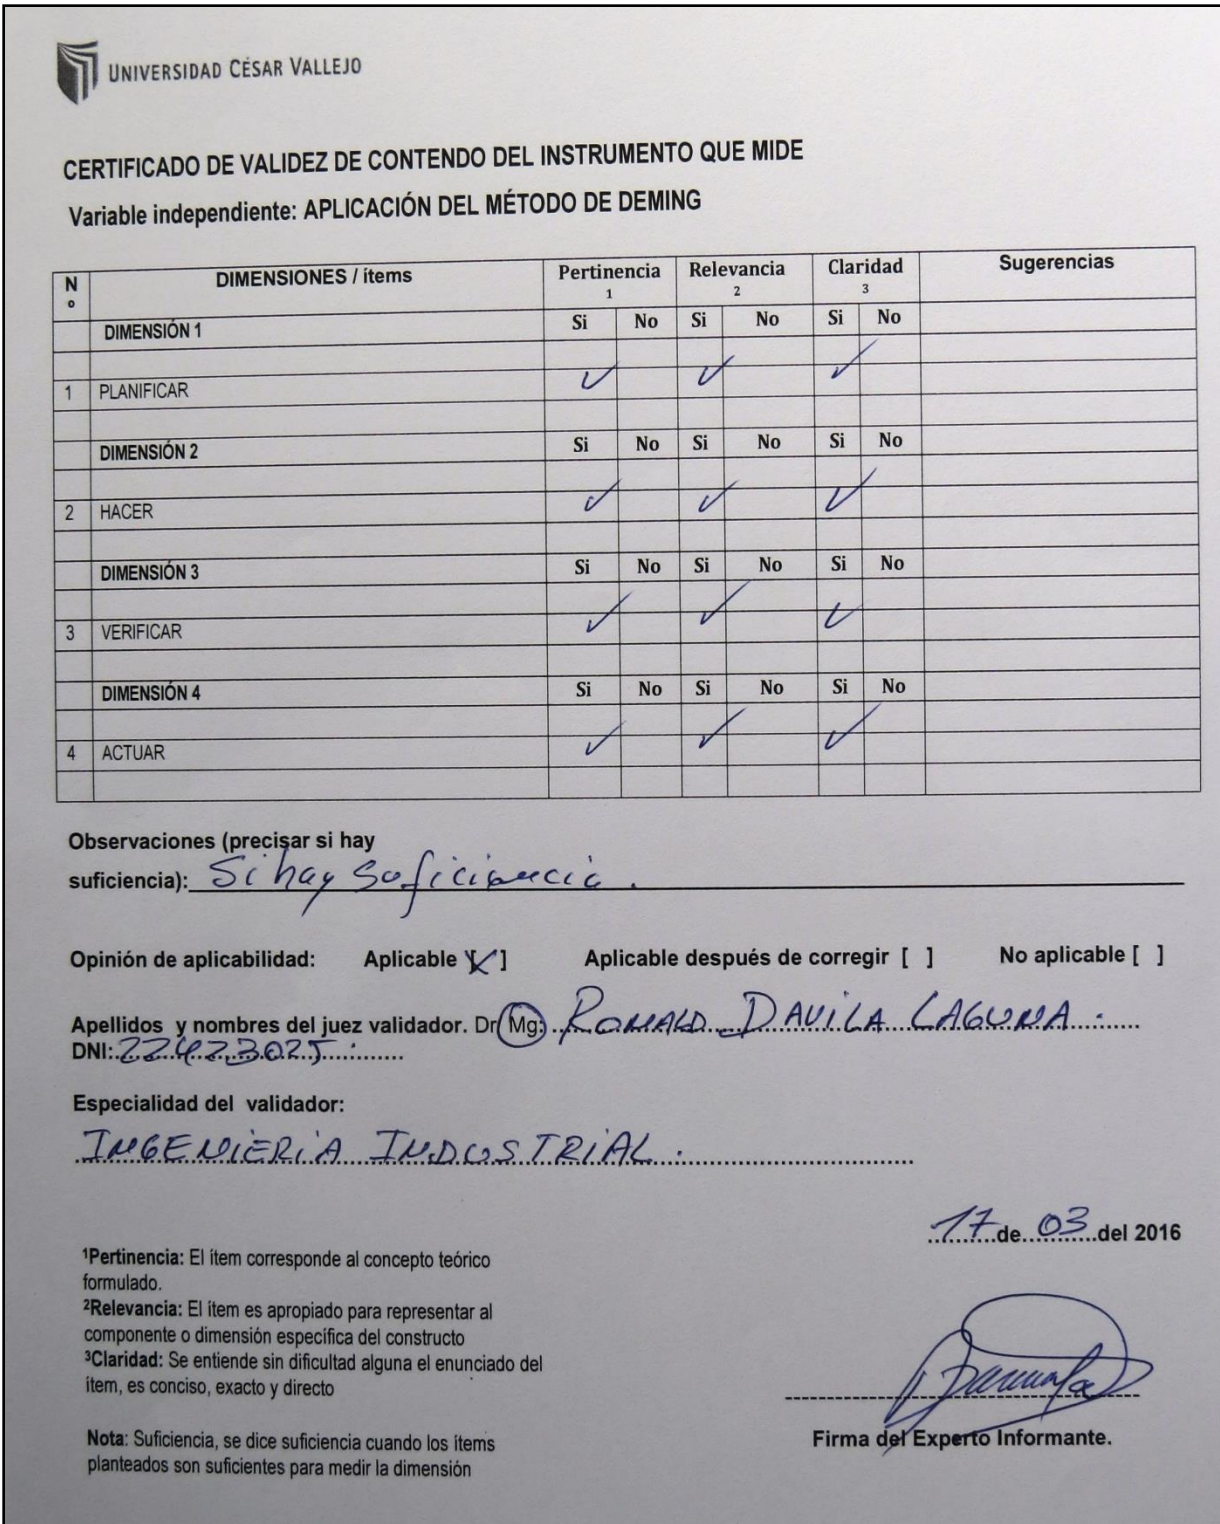 UNIVERSIDAD CÉSAR VALLEJO
CERTIFICADO DE VALIDEZ DE CONTENDO DEL INSTRUMENTO QUE MIDE
Variable independiente: APLICACIÓN DEL MÉTODO DE DEMING
Nº DIMENSIONES / ítems Pertinencia 1 Relevancia 2 Claridad 3 Sugerencias
DIMENSIÓN 1 Si No Si No Si No
1 PLANIFICAR ✓ ✓ ✓
DIMENSIÓN 2 Si No Si No Si No
2 HACER ✓ ✓ ✓
DIMENSIÓN 3 Si No Si No Si No
3 VERIFICAR ✓ ✓ ✓
DIMENSIÓN 4 Si No Si No Si No
4 ACTUAR ✓ ✓ ✓
Observaciones (precisar si hay
suficiencia): Si hay suficiencia.
Opinión de aplicabilidad: Aplicable [X] Aplicable después de corregir [ ] No aplicable [ ]
Apellidos y nombres del juez validador. Dr/Mg: RONALD DAVILA LAGUNA.
DNI: 22423025.
Especialidad del validador:
INGENIERIA INDUSTRIAL.
17 de 03 del 2016
¹Pertinencia: El ítem corresponde al concepto teórico
formulado.
²Relevancia: El ítem es apropiado para representar al
componente o dimensión específica del constructo
³Claridad: Se entiende sin dificultad alguna el enunciado del
ítem, es conciso, exacto y directo
Nota: Suficiencia, se dice suficiencia cuando los ítems
planteados son suficientes para medir la dimensión
Firma del Experto Informante.